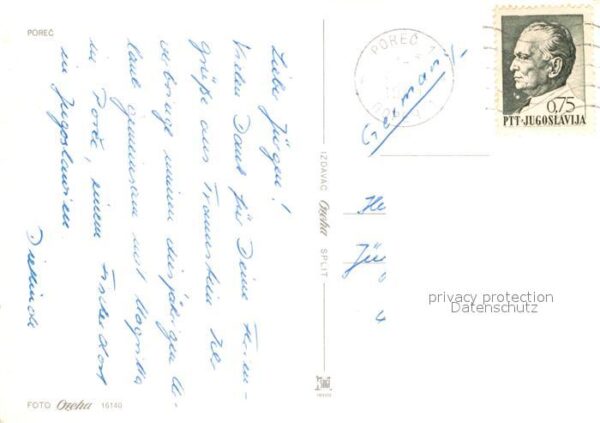 POREČ
Liebe Jürgen!
Vielen Dank für Deine Ferien-
grüße aus Traunstein. Ich
verbringe meinen diesjährigen Ur-
laub gemeinsam mit
in Poreč, einem Fischerdorf
in Jugoslawien.
FOTO Ozeha 16140
IZDAVAČ Ozeha SPLIT
POREČ
0,75
PTT-JUGOSLAVIJA
Germany
He
Jü
privacy protection
Datenschutz